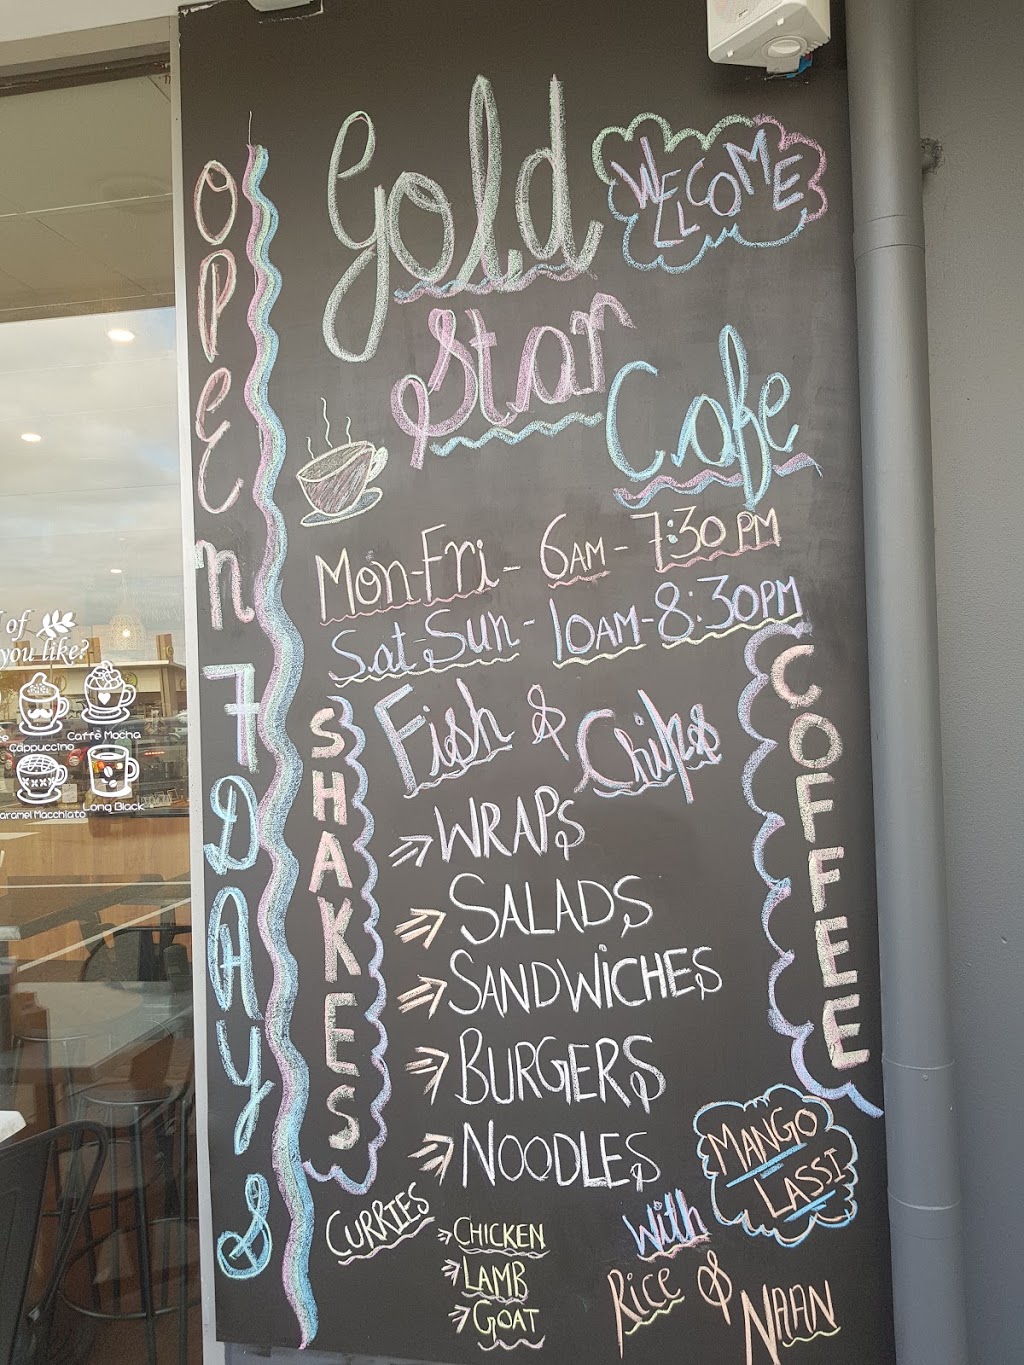 OPEn 7 DAYS
WELLCOME
Gold
Star
Cafe
Mon-Fri - 6AM - 7:30 PM
Sat-Sun - 10AM - 8:30PM
Fish & Chips
SHAKES
COFFEE
WRAPS
SALADS
SANDWiCHES
BURGERS
NOODLES
MANGO
LASSI
CURRIES
CHICKEN
LAMB
GOAT
With
Rice & NAAN
of
you like?
Cappuccino
Caffè Mocha
Long Black